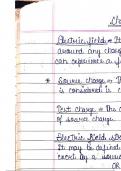 Electric field → It
around any charg
can experience a f
* Source charge → T
is considered is c
Test charge → The c
of source charge.
Electric field
It may be defin
exert by a sourc
OR